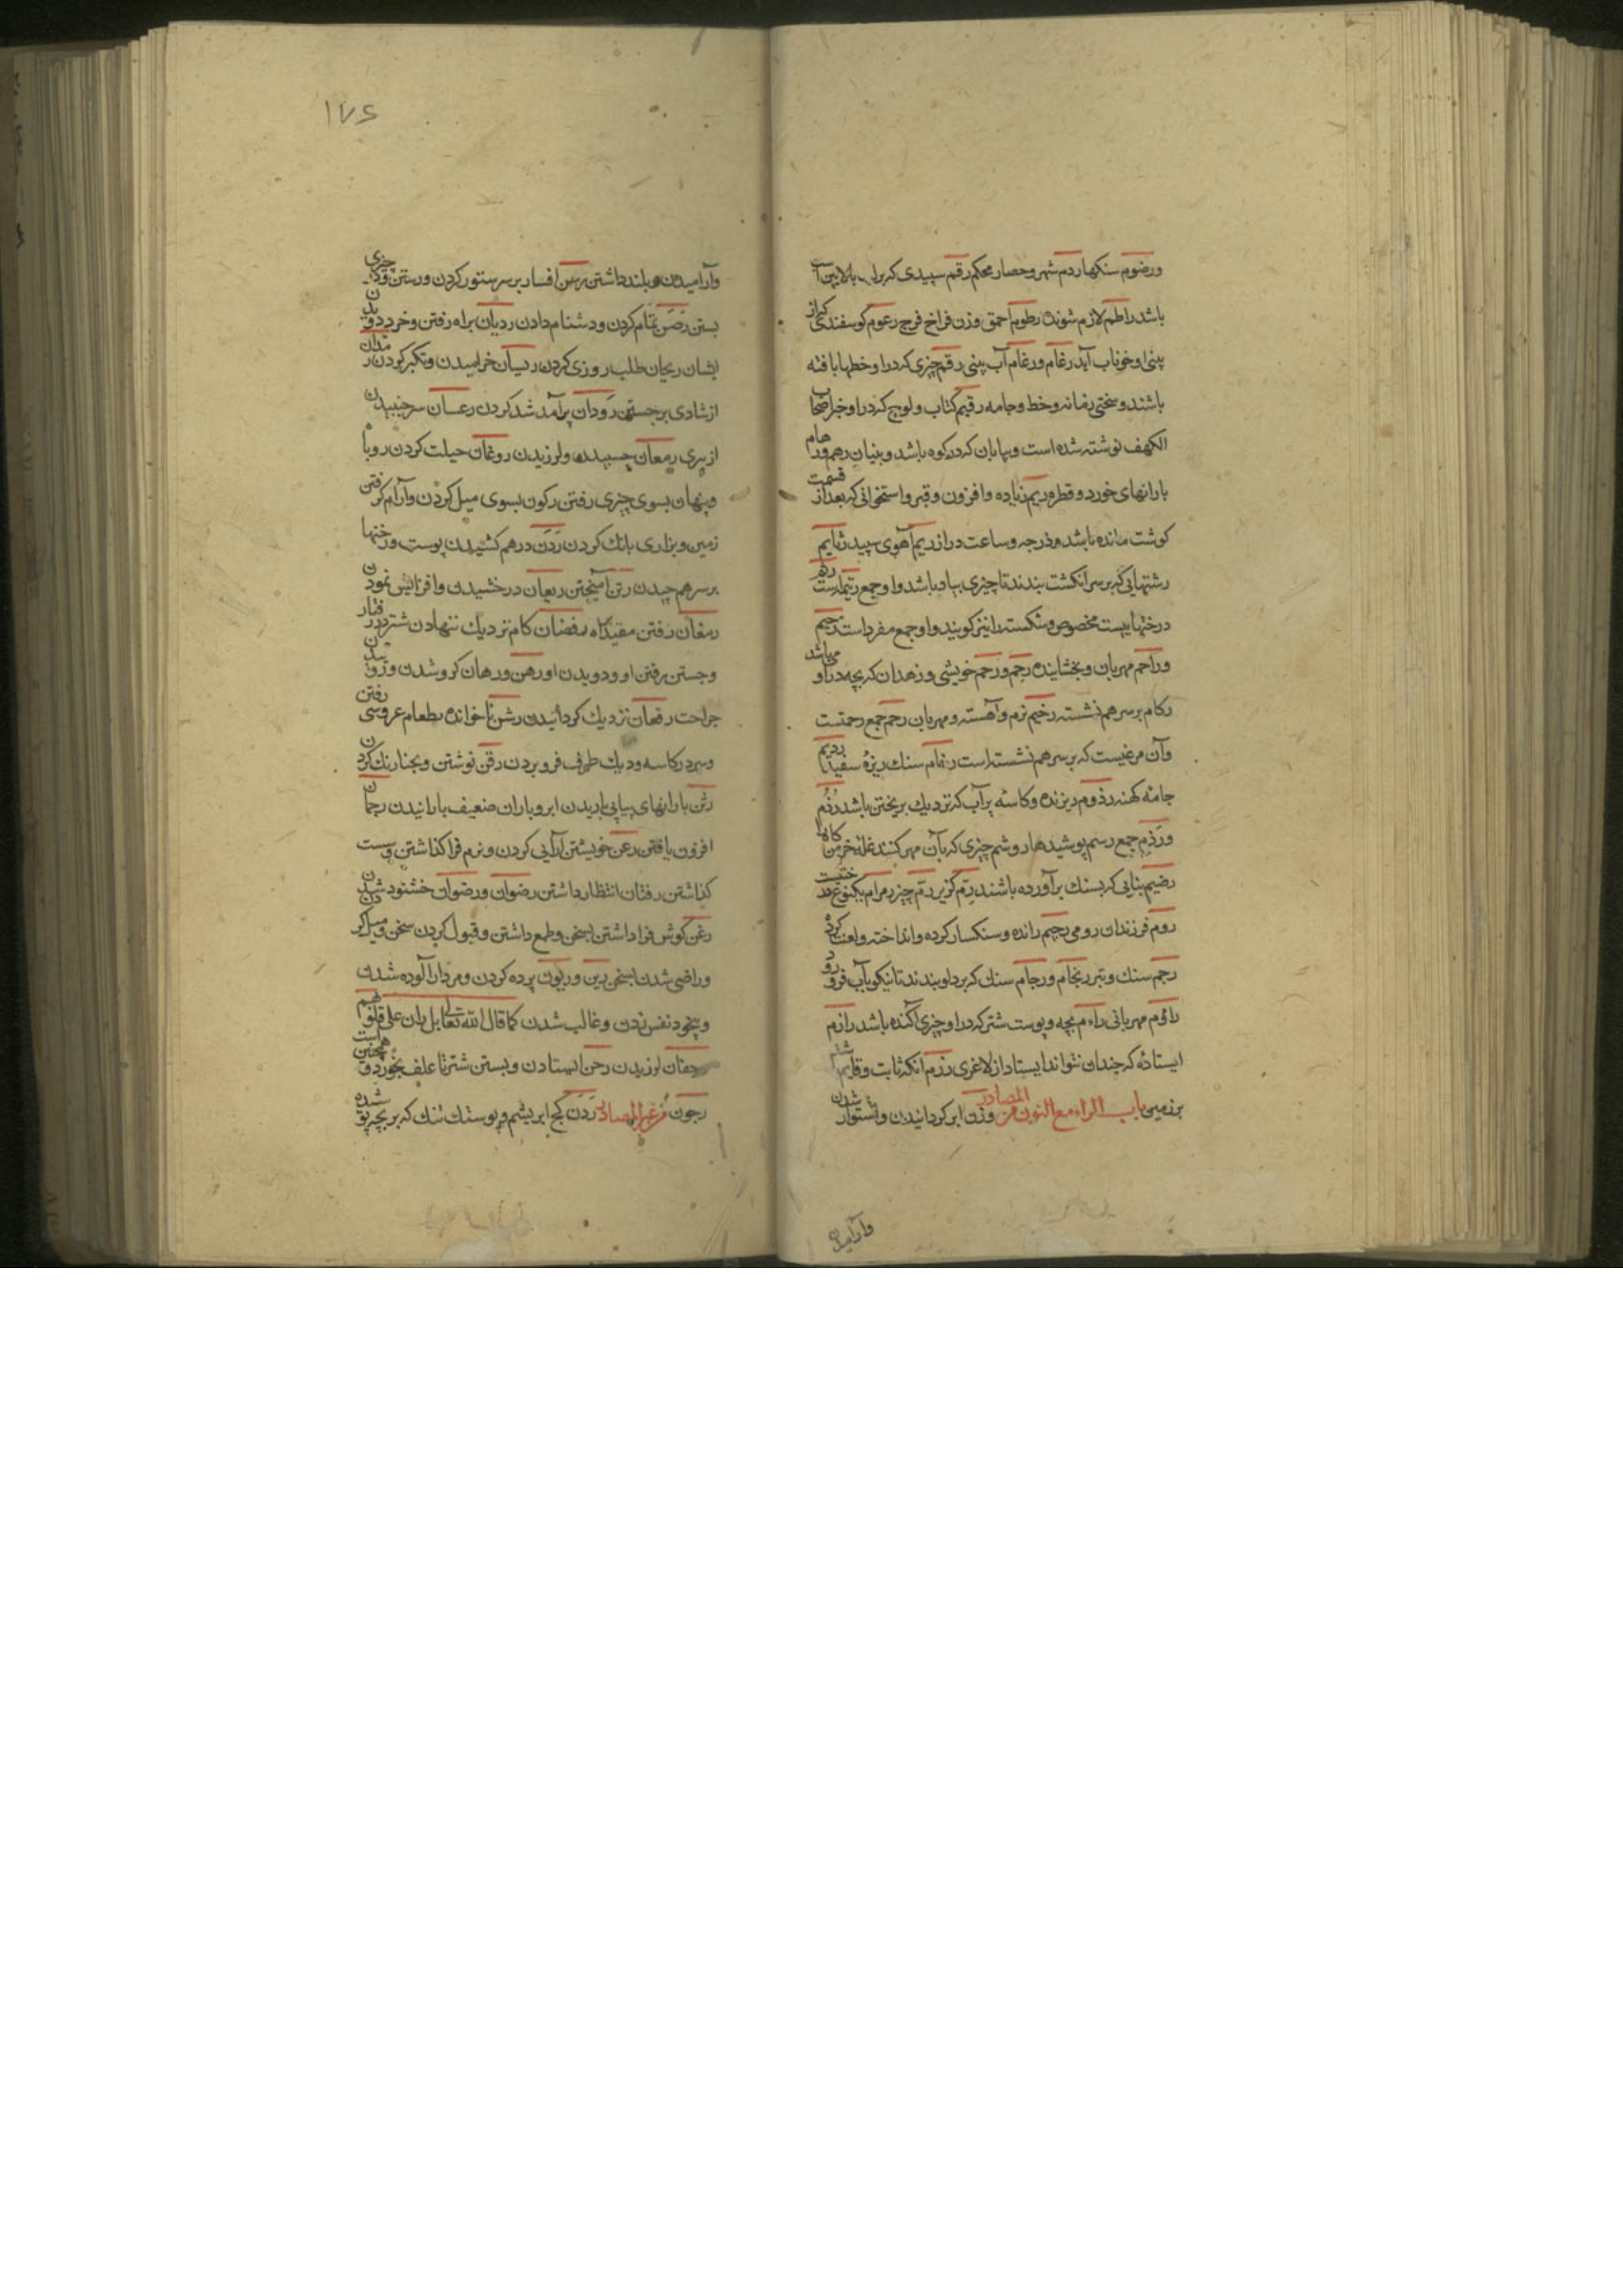 ورضوم سنکها ردم شهر وحصار محکم رقم سپیدی که بر بالا بین اسب
باشد راطم لازم شونده رطوم احمق وزن فراخ فرج رعوم کوسفندی که از
بینی او خوناب آید رغام ورغام آب بینی رقم چیزی که در او خطها بافته
باشند وسختی زمانه وخط وجامه رقیم کتاب ولوح که در او خبر اصحاب
الکهف نوشته شده است وبیابان که در کوه باشد وبنیان رهم ورهام
بارانهای خورد وقطره ریم زیاده وافزون وقبر واستخوانی که بعد از قسمت
کوشت مانده باشد ودرجه وساعت دراز ریم آهوی سپید رتایم
رشتهایی که بر سر انکشت بندند تا چیزی بیاد باشد واو جمع رتیمه است
درختهاییست مخصوص وشکسته را نیز کویند واو جمع مفرد است رحیم
وراحم مهربان وبخشاینده رحم ورحم خویشی وزهدان که بچه در او میباشد
رکام بر سر هم نشسته رخیم نرم وآهسته ومهربان رحم جمع رحمتست
وآن مرغیست که بر سر هم نشسته است رغام سنک ریزهٔ سفید ردیم
جامهٔ کهنه رذوم ریزنده وکاسهٔ پر آب که نزدیک بریختن باشد رذم
ورذم جمع رسم پوشیدها روشم چیزی که بآن مهر کنند غله خرمن کاه
رضیم بنایی که بسنک برآورده باشند رم کزیر رم چیز مرام یکنوع درختیست
روم فرزندان رومی رجیم رانده وسنکسار کرده وانداخته ولعنت کرده
رجم سنک وتبر رجام ورجام سنک که بر دلو بندند تا نیکو بآب فرو رود
راؤم مهربانی راءم بچه وپوست شتر که در او چیزی آکنده باشد رازم
ایستاده که چندان نتواند ایستاد از لاغری رزم آنکه ثابت وقایم باشد
بر زمین باب الراء مع النون من المصادر وزن ابر کردانیدن واستوار شدن
وآرامیدن
۱۷۶
وآرامیدن وبلند داشتن رسن افسار بر سر ستور کردن ورستن وکا چیزی
بستن رصن تمام کردن ودشنام دادن ردیان براه رفتن وخرد دویدن
ایشان ریحان طلب روزی کردن ریسان خرامیدن وتکبر کردن
از شادی برجستن رودان برآمد شد کردن رعسان سر جنبیدن
از پیری رمعان چسبیدن ولرزیدن روغان حیلت کردن روباه
وپنهان بسوی چیزی رفتن رکون بسوی میل کردن وآرام کرفتن
زمین وبزاری بانک کردن ردن درهم کشیدن پوست ورختها
بر سر هم چیدن رتن آمیختن ریعان درخشیدن وافزایش نمودن
رمغان رفتن مقیدانه رفضان کام نزدیک ننهادن شتر در رفتار
وجستن برفتن او ودویدن او رهن ورهان کرو شدن
جراحت رفعان نزدیک کردانیدن رشن ناخوانده بطعام عروسی رفتن
وسر در کاسه ودیک طرف فرو بردن رقن نوشتن وبحنا رنک کردن
رثن بارانهای پیاپی باریدن ابر وباران ضعیف بارانیدن رجحان
افزون یافتن رعن خویشتن آرایی کردن ونرم فرا کذاشتن وسست
کذاشتن رفتان انتظار داشتن رضوان ورضوان خشنود شدن
رغن کوش فرا داشتن بسخن وطمع داشتن وقبول کردن سخن ومیل کردن
وراضی شدن بسخن رین وریون پرده کردن ومردار آلوده شدن
وبیخود نفس زدن وغالب شدن کما قال الله تعالی بل ران علی قلوبهم
رجفان لرزیدن رجن ایستادن وبستن شتر تا علف بخورد وهمچنین است
رجون من غیر المصادر ردن کج ابریشم وپوستک تنک که بر بچه پوشیده شده